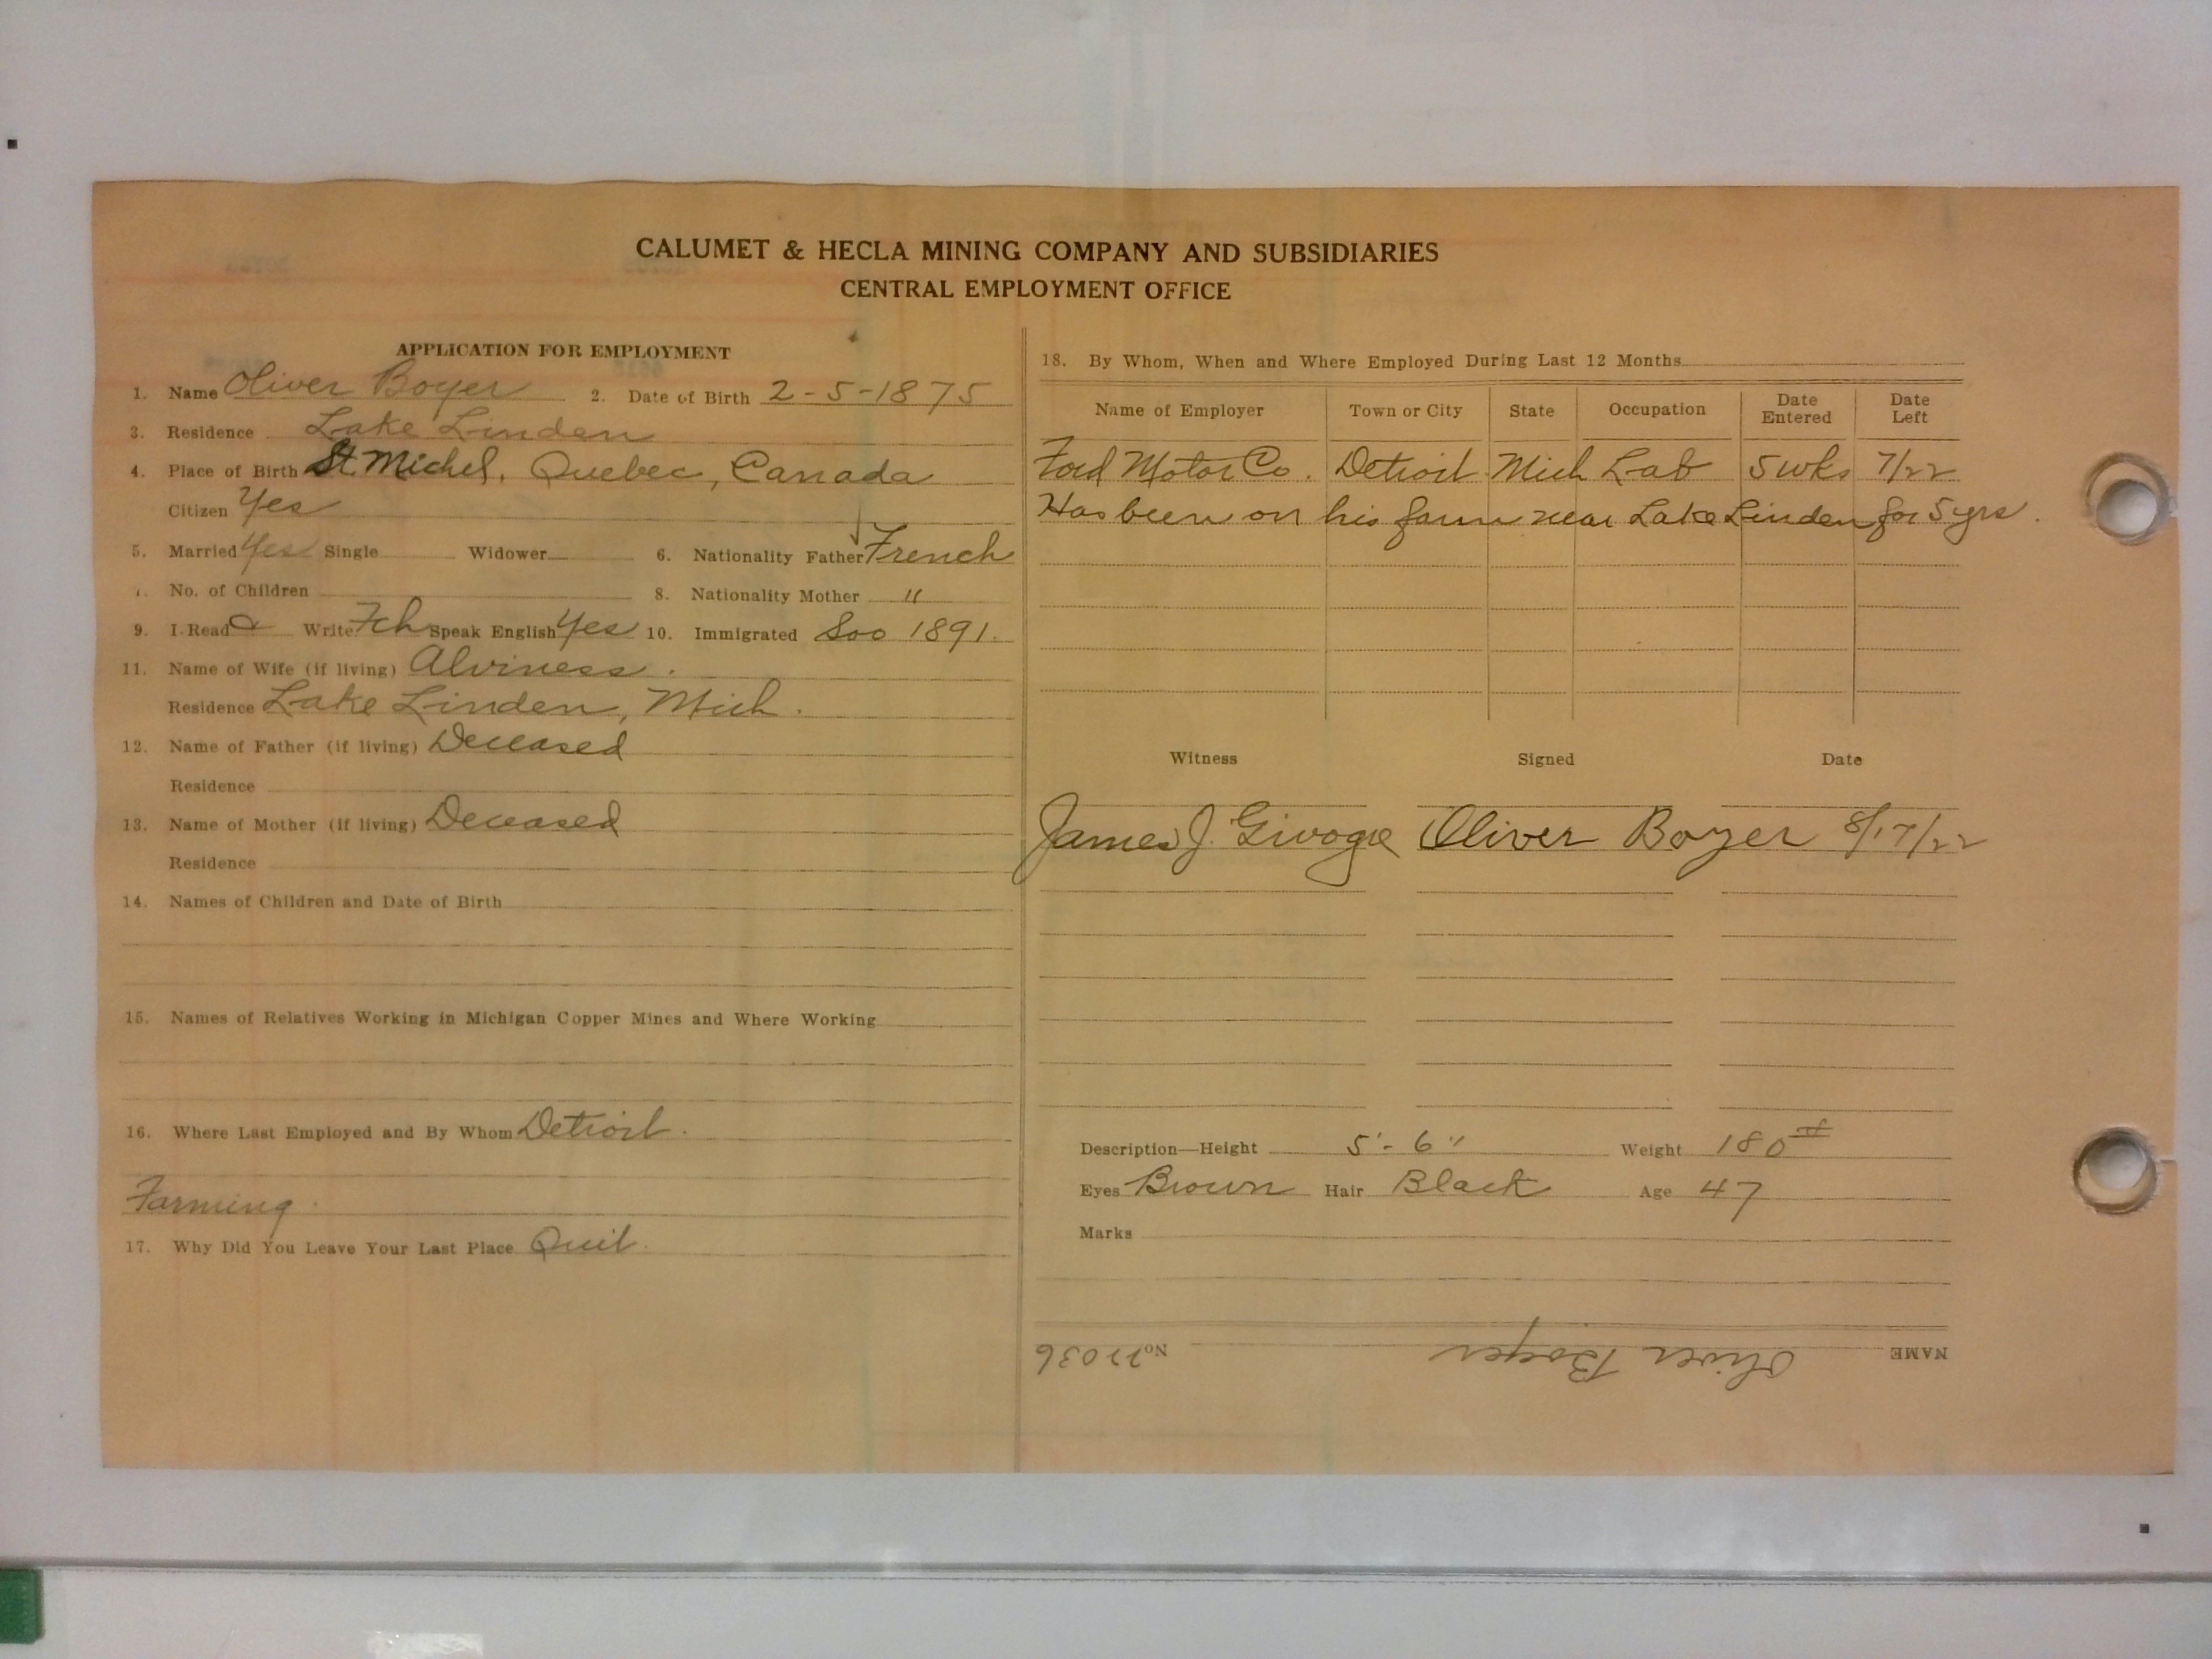 CALUMET & HECLA MINING COMPANY AND SUBSIDIARIES
CENTRAL EMPLOYMENT OFFICE
APPLICATION FOR EMPLOYMENT
1. Name Oliver Boyer 2. Date of Birth 2-5-1875
3. Residence Lake Linden
4. Place of Birth St. Michel, Quebec, Canada
Citizen Yes
5. Married Yes Single Widower 6. Nationality Father French
7. No. of Children 8. Nationality Mother "
9. I Read & Write Fch Speak English Yes 10. Immigrated Soo 1891.
11. Name of Wife (if living) Alviness.
Residence Lake Linden, Mich.
12. Name of Father (if living) Deceased
Residence
13. Name of Mother (if living) Deceased
Residence
14. Names of Children and Date of Birth
15. Names of Relatives Working in Michigan Copper Mines and Where Working
16. Where Last Employed and By Whom Detroit.
Farming.
17. Why Did You Leave Your Last Place Quit.
18. By Whom, When and Where Employed During Last 12 Months
Name of Employer Town or City State Occupation Date Entered Date Left
Ford Motor Co. Detroit Mich Lab 5 wks 7/22
Has been on his farm near Lake Linden for 5 yrs.
Witness Signed Date
James J. Oliver Boyer 8/17/22
Description—Height 5'-6" Weight 180#
Eyes Brown Hair Black Age 47
Marks
NAME Oliver Boyer No. 77036